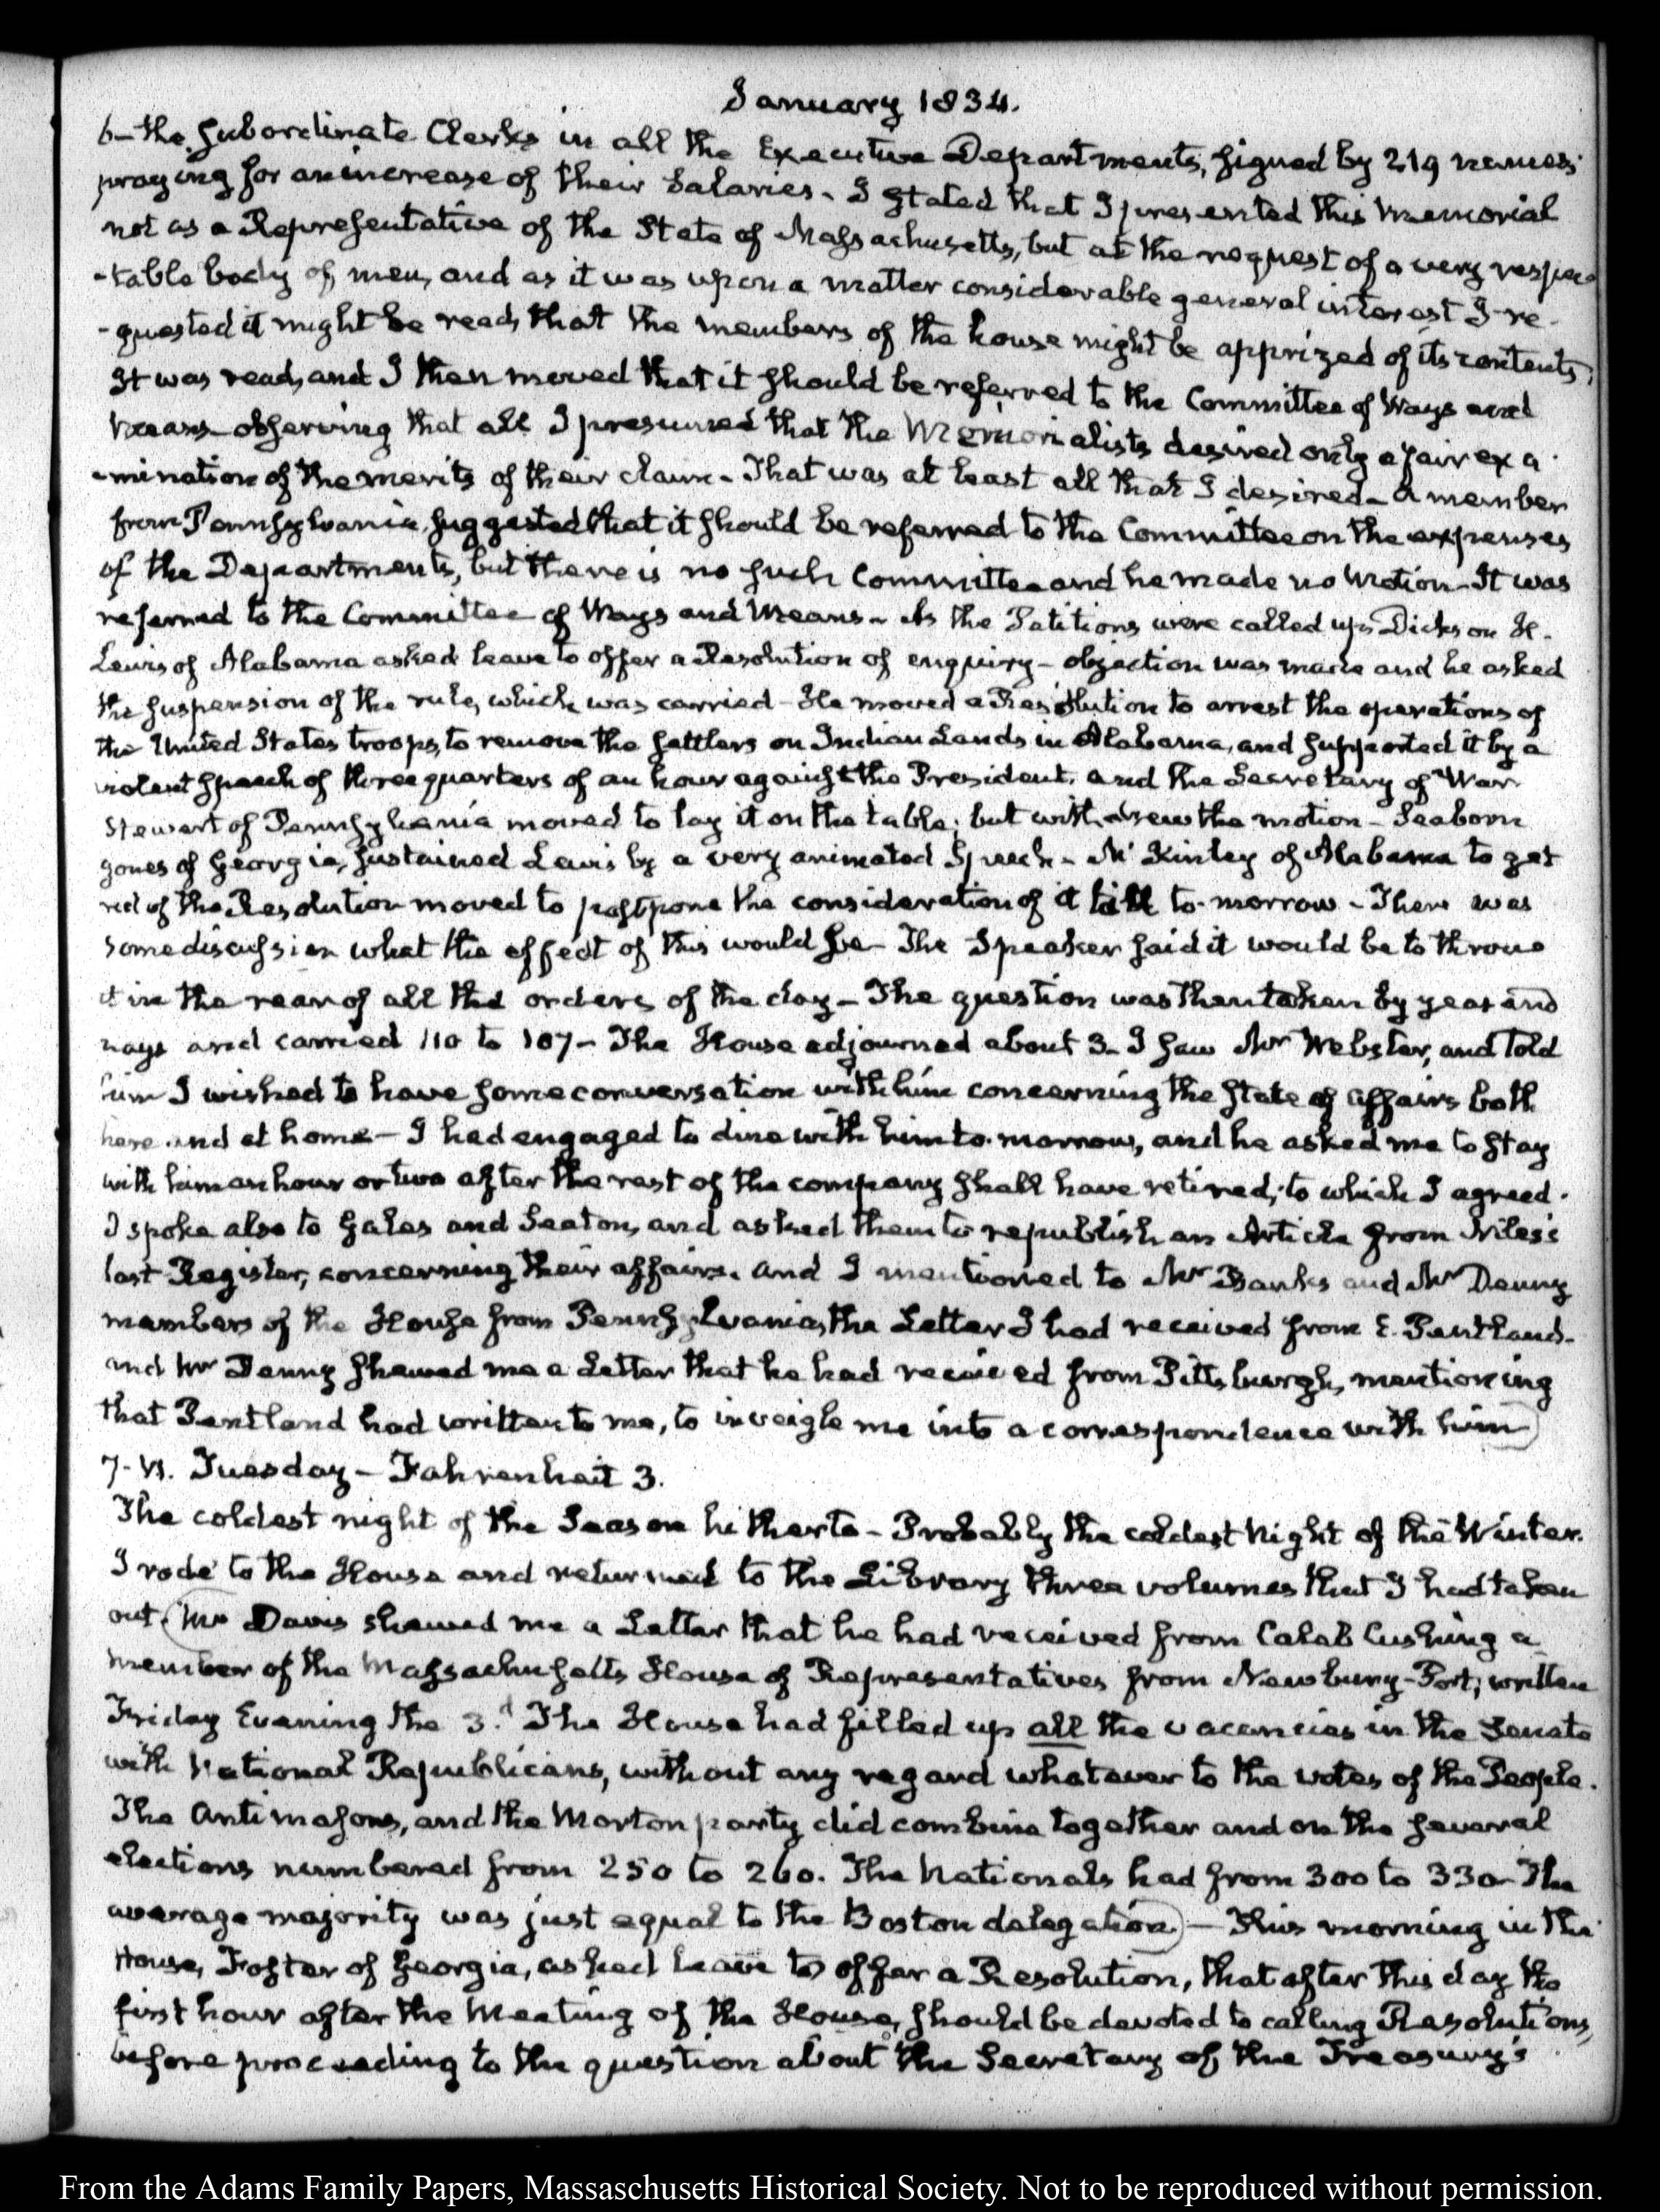 January 1834.
6- the Subordinate Clerks in all the Executive Departments, signed by 219 names;
praying for an increase of their Salaries - I stated that I presented this Memorial
not as a Representative of the State of Massachusetts, but at the request of a very respec
-table body of men, and as it was upon a matter considerable general interest I re-
-quested it might be read, that the members of the house might be apprized of its contents,
It was read, and I then moved that it should be referred to the Committee of Ways and
Means - observing that all I presumed that the Memorialists desired only a fair exa-
-mination of the merits of their claim - That was at least all that I desired - A member
from Pennsylvania suggested that it should be referred to the Committee on the expenses
of the Departments, but there is no such Committee and he made no motion - It was
referred to the Committee of Ways and Means - As the Petitions were called up, Dickson H.
Lewis of Alabama asked leave to offer a Resolution of enquiry - objection was made and he asked
the suspension of the rule, which was carried - He moved a Resolution to arrest the operations of
the United States troops, to remove the settlers on Indian Lands in Alabama, and supported it by a
violent speech of three quarters of an hour against the President, and the Secretary of War
Stewart of Pennsylvania moved to lay it on the table; but withdrew the motion - Seaborn
Jones of Georgia, sustained Lewis by a very animated Speech - McKinley of Alabama to get
rid of the Resolution moved to postpone the consideration of it till to-morrow - There was
some discussion what the effect of this would be - The Speaker said it would be to throw
it in the rear of all the orders of the day - The question was then taken by yeas and
nays and carried 110 to 107 - The House adjourned about 3 - I saw Mr Webster, and told
him I wished to have some conversation with him concerning the state of affairs both
here and at home - I had engaged to dine with him to-morrow, and he asked me to stay
with him an hour or two after the rest of the company shall have retired; to which I agreed.
I spoke also to Gales and Seaton, and asked them to republish an Article from Niles's
last Register, concerning their affairs. And I mentioned to Mr Banks and Mr Denny
members of the House from Pennsylvania, the Letter I had received from E. Pentland-
and Mr Denny shewed me a Letter that he had received from Pittsburgh, mentioning
that Pentland had written to me, to inveigle me into a correspondence with him)
7- VI. Tuesday - Fahrenheit 3.
The coldest night of the Season hitherto - Probably the coldest Night of the Winter.
I rode to the House and returned to the Library three volumes that I had taken
out. (Mr Davis shewed me a Letter that he had received from Caleb Cushing a
member of the Massachusetts House of Representatives from Newbury-Port; written
Friday Evening the 3.d The House had filled up all the vacancies in the Senate
with National Republicans, without any regard whatever to the votes of the People.
The Antimasons, and the Morton party did combine together and on the several
elections numbered from 250 to 260. The Nationals had from 300 to 330 - The
average majority was just equal to the Boston delegation) - This morning in the
House, Foster of Georgia, asked leave to offer a Resolution, that after this day the
first hour after the Meeting of the House, should be devoted to calling Resolutions,
before proceeding to the question about the Secretary of the Treasury's
From the Adams Family Papers, Massachusetts Historical Society. Not to be reproduced without permission.